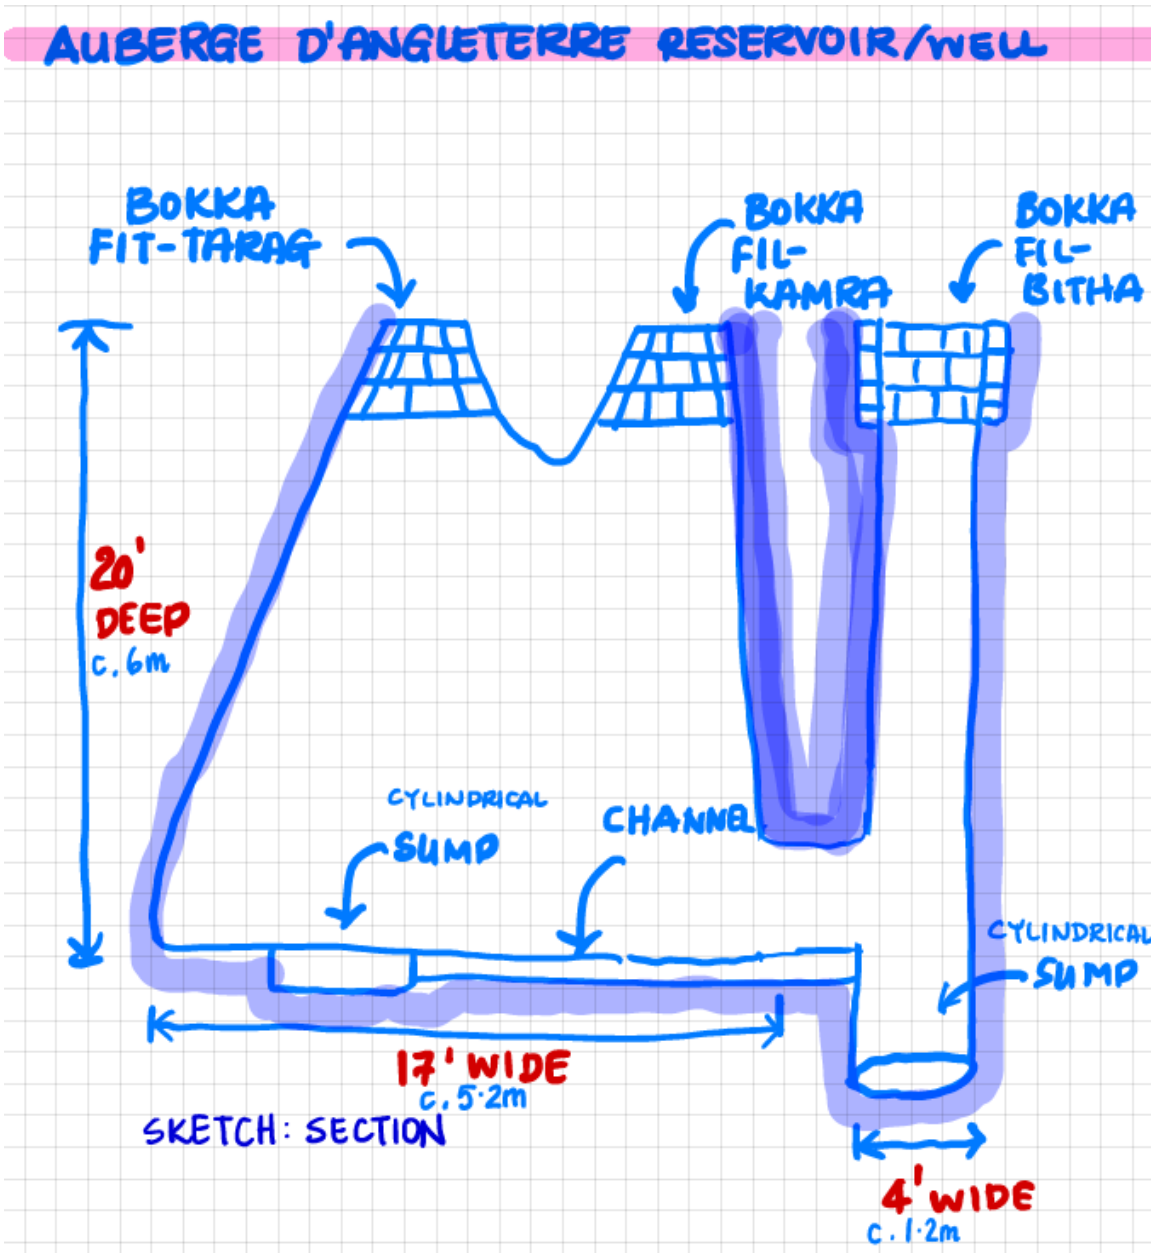 AUBERGE D'ANGLETERRE RESERVOIR/WELL
BOKKA
FIT-TARAG
BOKKA
FIL-
KAMRA
BOKKA
FIL-
BITHA
20'
DEEP
c. 6m
CYLINDRICAL
SUMP
CHANNEL
CYLINDRICAL
SUMP
17' WIDE
c. 5.2m
SKETCH: SECTION
4' WIDE
c. 1.2m